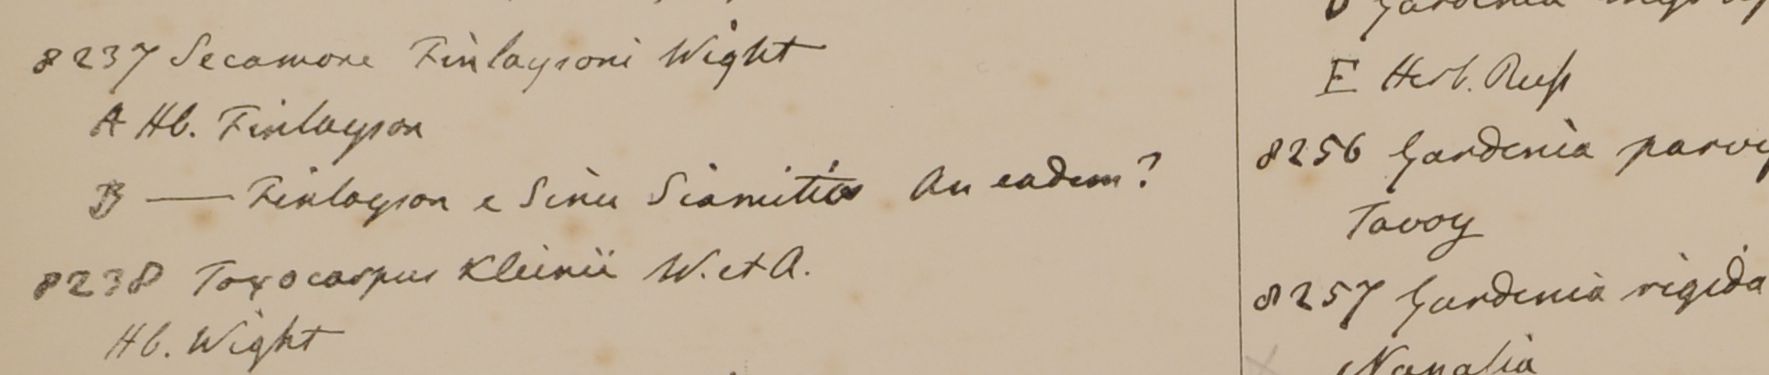 8237 Secamone Finlaysoni Wight
A Hb. Finlayson
B — Finlayson e Sinu Siamitico An eadem?
8238 Toxocarpus Kleinii W. et A.
Hb. Wight
Gardenia
E Herb. Russ
8256 Gardenia
Tavoy
8257 Gardenia rigida